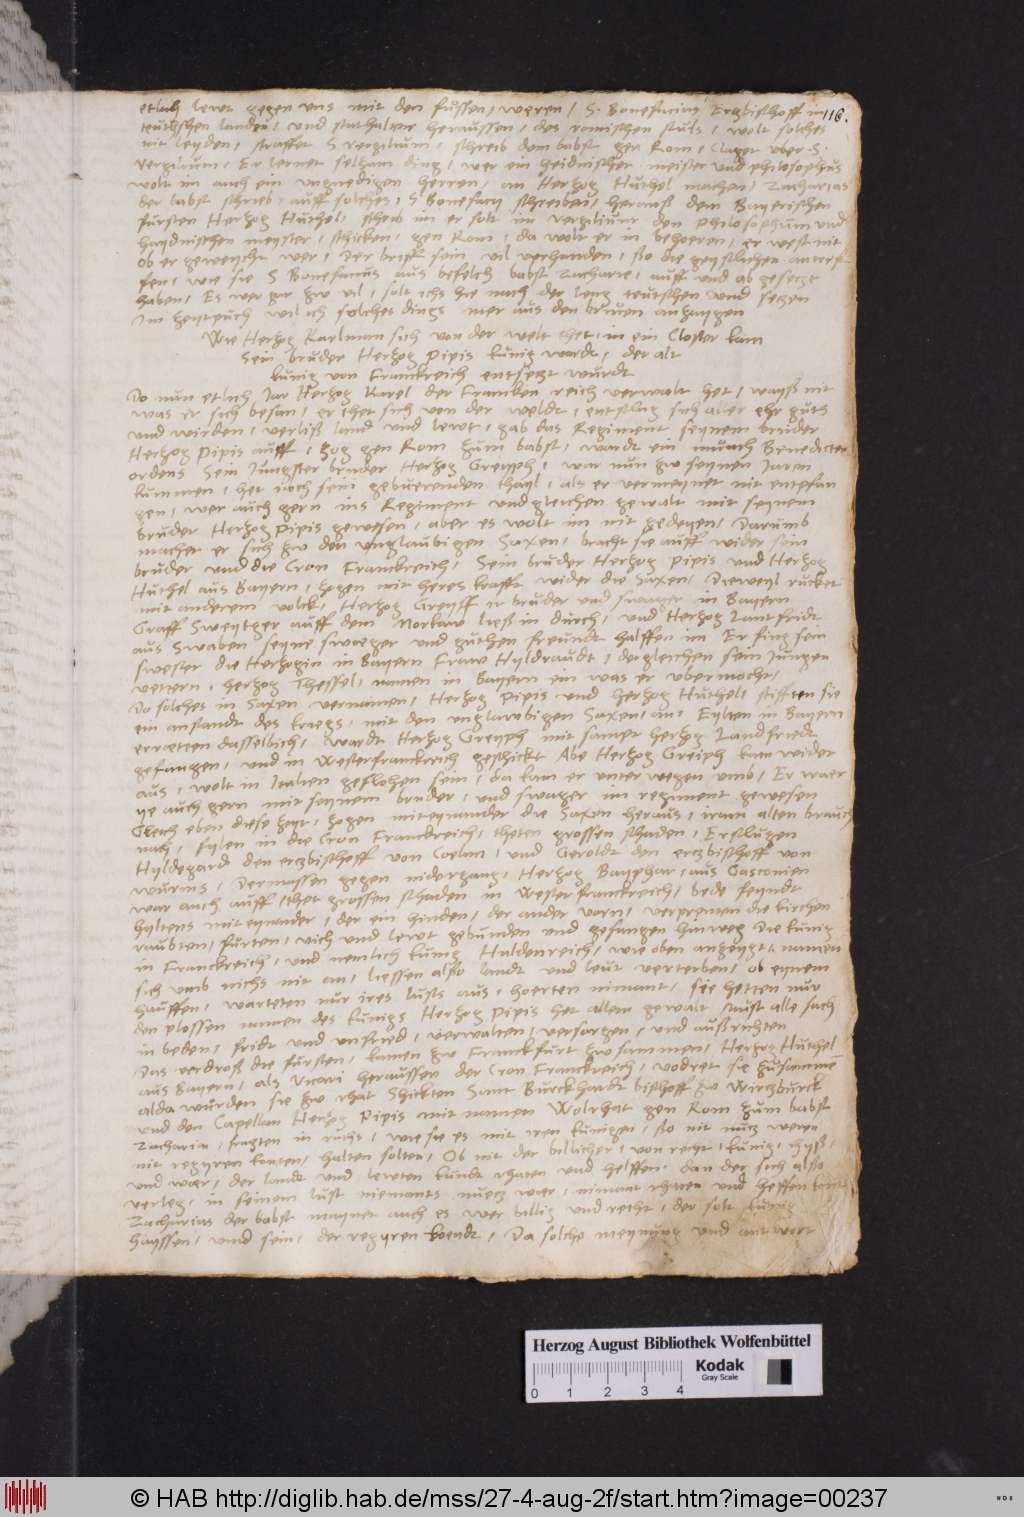 etlich lewt gegen uns mit den füssen, weren, S. Bonefacius Erzbisthoff in 116.
teutschen landen, und stathalter heraussen, des romischen stuls, wolt solches
nit leyden, straffet S Vergilium, schreib dem babst gen Rom, Claget uber S.
Vergilium, Er lernet seltzam ding, wer ein heidnischer meister und philosophus
wolt im auch ein ungnedigen herren, an Hertzog Hüthel machen, Zacharias
der babst schrieb, auff solches, S Bonefacy schreiben, herauß dem Bayerischen
fürsten Hertzog Hüthel, das er solt im Vergilium den philosophum und
haydnischen meyster, schicken, gen Rom, da wolt er in behoeren, er west nit
ob er geweycht wer, Der brieff sein vil verhanden, so die geystlichen antreff
fen, wie sie S Bonefacius aus befelch babst Zacharie, auff und ab gesetzt
haben, Es wer gar zw vil, solt ichs hie nach der leng teutschen und setzen
Im zeytpuch wil ich solches dings mer aus den brieven anzaygen
Wie Hertzog Karlman sich von der welt thet, in ein Closter kam
Sein bruder Hertzog Pipis kunig wardt, der alt
kunig von Franckreich entsetzt wurdt
Do nun etlich Jar Hertzog Karel der Francken reich verwalt het, wayß nit
was er sich besan, er thet sich von der weldt, entschlug sich aller ehr guts
und wirden, verließ land und lewt, gab das Regiment seynem bruder
Hertzog Pipis auff, zog gen Rom zum babst, wardt ein munch Benedicter
ordens Sein Jungster bruder Hertzog Greyph, war nun zw seynen Jaren
kummen, het noch sein gebuerenden thayl, als er vermeynet nit entpfan
gen, wer auch gern ins Regiment und gleichen gewalt mit seynem
bruder Hertzog Pipis gewesen, aber es wolt im nit gedeyen, Darumb
machet er sich zw den unglaubigen Saxen, bracht sie auff wider sein
bruder und die Cron Franckreich, Sein bruder Hertzog Pipis und Hertzog
Hüthel aus Bayern, zogen mit heres krafft wider die Saxen, Dieweyl rucket
mit anderem volck, Hertzog Greyff ir bruder und swager in Bayern
Graff Sweytger auff dem Norkaw ließ in durch, und Hertzog Lantfridt
aus Swaben seyne swaeger und guthen freundt halffen im Er fing sein
swester die Hertzogin in Bayern Fraw Hyldraudt, dergleichen sein Jungen
vettern, hertzog Thessel, namen in Bayern ein was er vbermocht,
Do solches in Saxen vernamen, Hertzog Pipis und hertzog Hüthel, stifften sie
ein anstandt des kriegs, mit den unglawbigen Saxen, an, Eylten in Bayern
erretten dasselbich, wardt Hertzog Greyph mit sampt hertzog Landfriedt
gefangen, und in Westerfranckreich geschickt Abe Hertzog Greiph kam wider
aus, wolt in Italien geflohen sein, da kam er unter wegen umb, Er waer
ye auch gern mit seynem bruder, und swager im regiment gewesen
Gleich eben diese zeyt, zogen miteynander die Saxen heraus, irem alten brauch
nach, fylen in die Cron Franckreich, theten grossen schaden, Erschlugen
Hyldegard den ertzbischoff von Coelen, und Geroldt den ertzbischoff von
wurms, Dermassen gegen nidergang, Hertzog Bayphar, aus Gasconien
war auch auff, thet grossen schaden in Westerfranckreich, bede feyndt
hyltens miteynander, der ein hinden, der ander vorn, verprenten die kirchen
raubten, fürten, vich und lewt gebunden und gefangen hinweg Die kunig
in Franckreich, und nemlich kunig Huldenreich, wie oben angezeygt, namen
sich umb nichs nit an, liessen also landt und leut verterben, ob eynem
hauffen, warteten nur ires lusts aus, hoerten nimant, sie hetten nur
den plossen namen des kunigs Hertzog Pipis het allen gewalt must alle sach
in beden, fridt und unfried, verwalten, versorgen, und außrichten
Das verdroß die fürsten, kamen zw Franckfurt zwsammen, Hertzog Hüthel
aus Bayern, als Vicari heraussen der Cron Franckreich, vodret sie zusammen
alda wurden sie zw rhat Schickten Sant Burckhardt bisthoff zw Wirtzburck
und den Capellan Hertzog Pipis mit namen Wolrhat gen Rom zum babst
Zacharia, fragten in raths, wie sie es mit iren kunigen, so nit nutz weren
nit regiren konten, halten solten, Ob nit der billicher, von recht, kunig, hyß,
und waer, der landt und lewten kundt rhaten und helffen, dan der sich also
verleg, in seinem lust niemants nuetz waer, nimant rhaten und helffen kont
Zacharias der babst maynet auch es wer billig und recht, der solt kunig
hayssen, und sein, der regyren koendt, Da solche meynung und antwort
Herzog August Bibliothek Wolfenbüttel
0 1 2 3 4
Kodak
Gray Scale
© HAB http://diglib.hab.de/mss/27-4-aug-2f/start.htm?image=00237